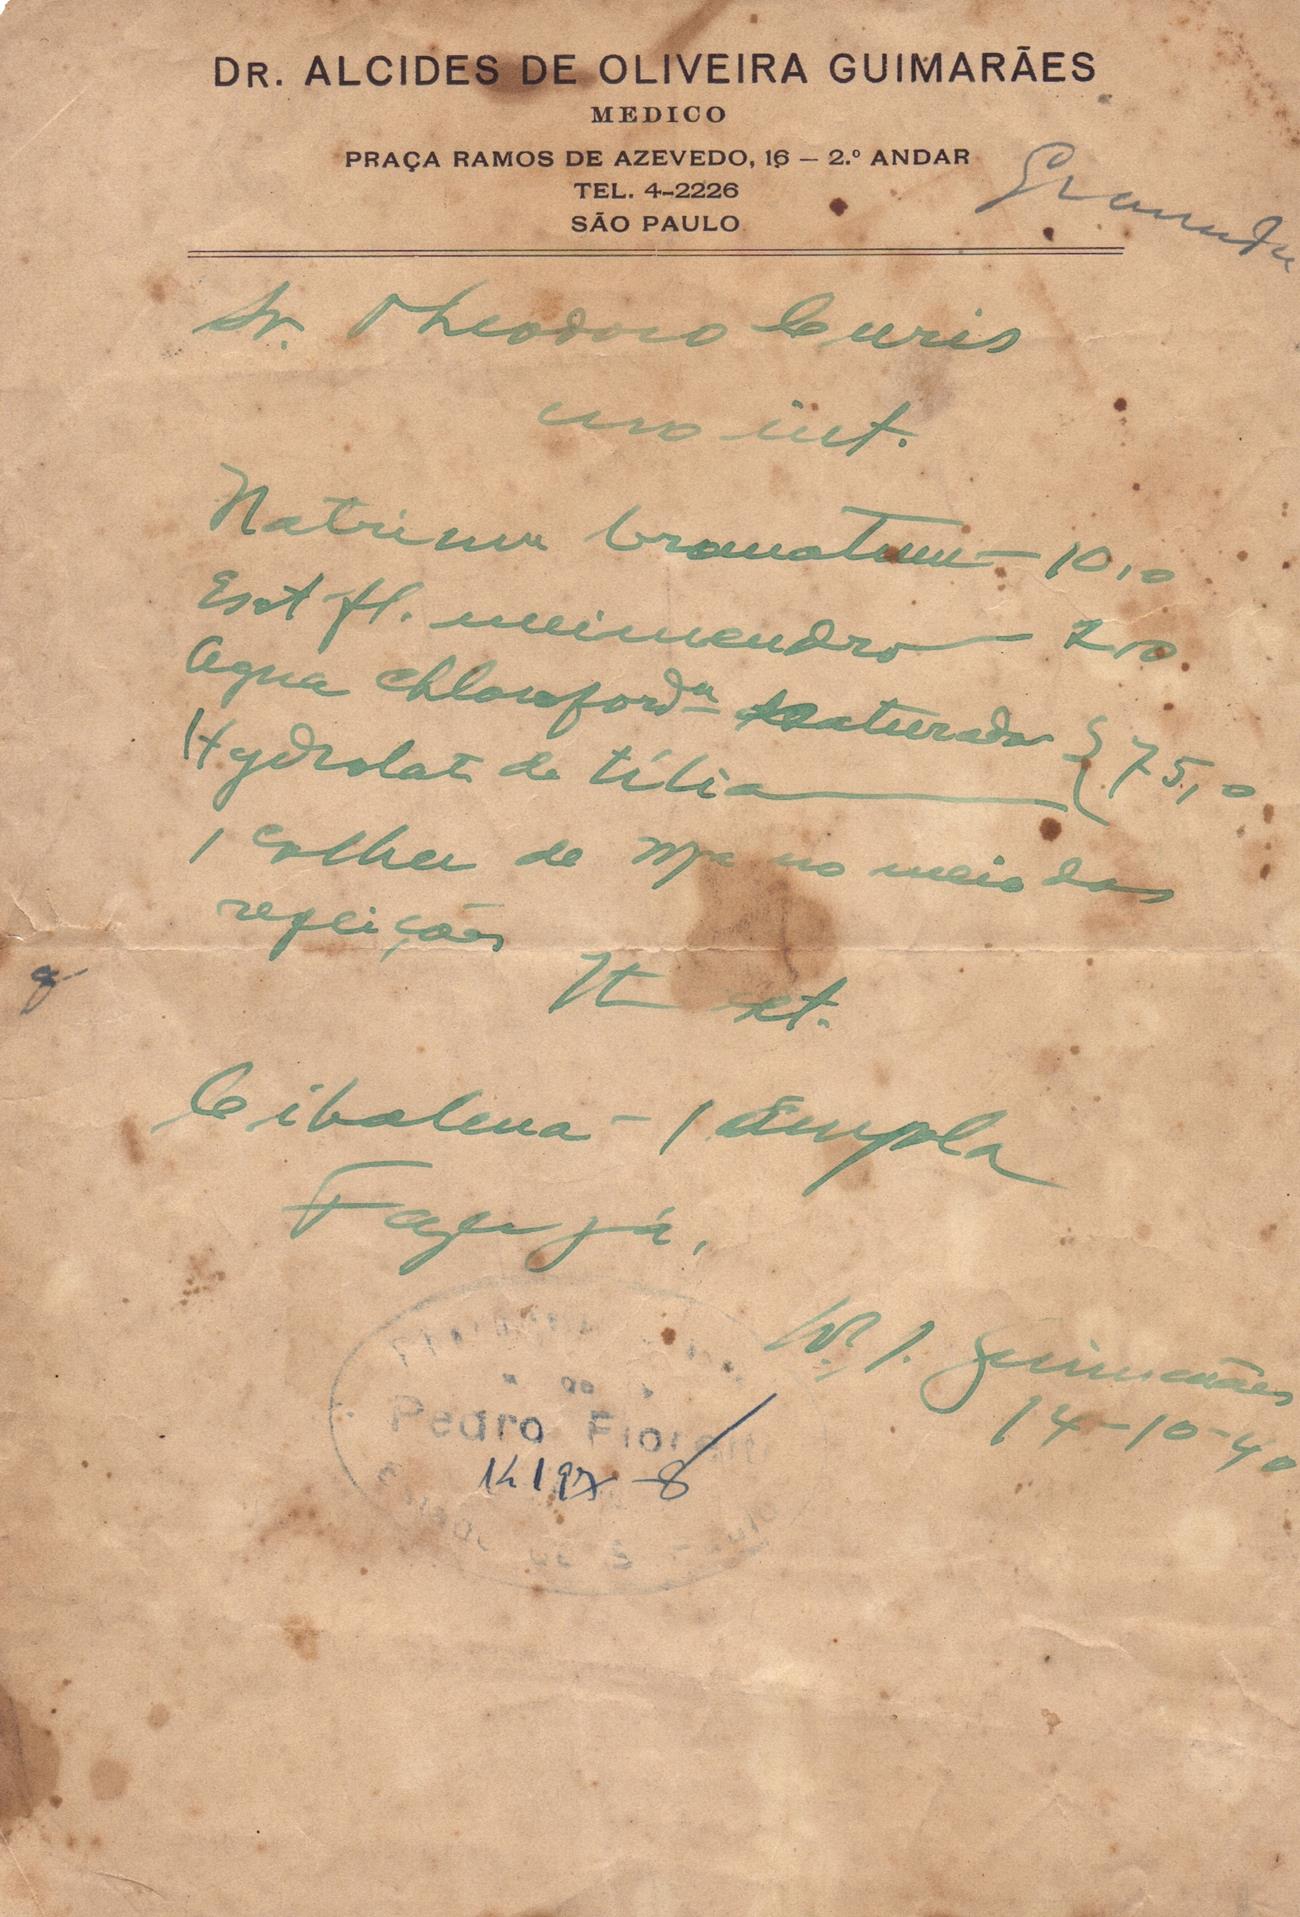 DR. ALCIDES DE OLIVEIRA GUIMARÃES
MEDICO
PRAÇA RAMOS DE AZEVEDO, 16 – 2.º ANDAR
TEL. 4-2226
SÃO PAULO
Sr. Theodoro Curis
uso int.
Natrium bromatum — 10,0
Ext fl. meimendro — 2,0
Agua chloroforda saturada } 75,0
Hydrolat de tilia
1 colher de no meio das
refeições
It ext.
Cibalena – 1 Empola
Faça já.
Guimarães
14-10-40
Pedro